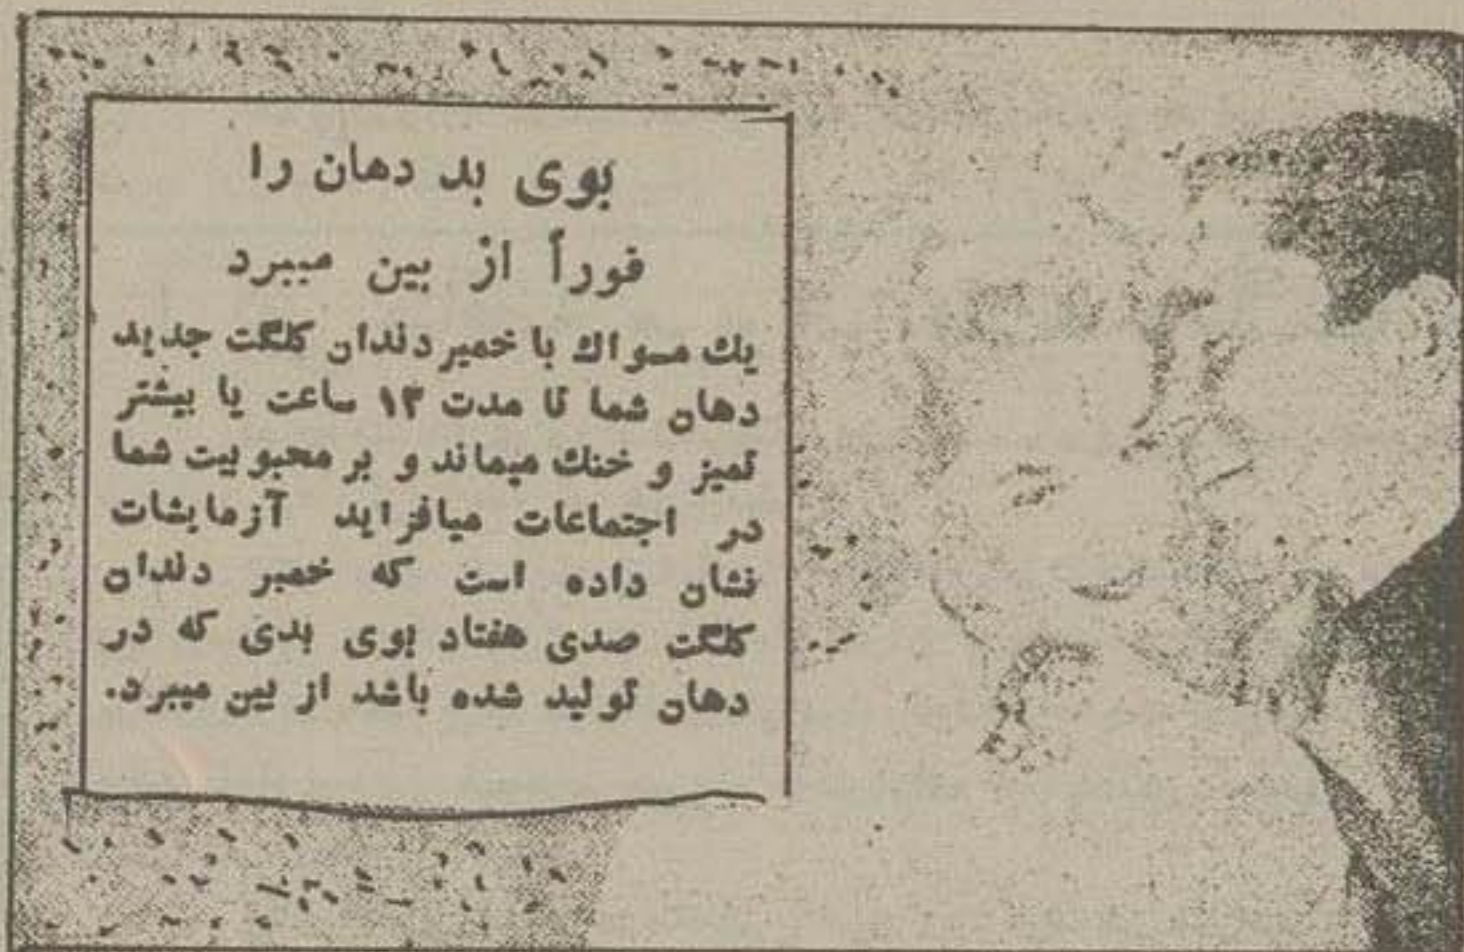 بوی بد دهان را
فوراً از بین میبرد
یك مسواك با خمیر دندان کلگت جدید
دهان شما تا مدت ۱۲ ساعت یا بیشتر
تمیز و خنك میماند و بر محبوبیت شما
در اجتماعات میافزاید آزمایشات
نشان داده است که خمیر دندان
کلگت صدی هفتاد بوی بدی که در
دهان تولید شده باشد از بین میبرد.